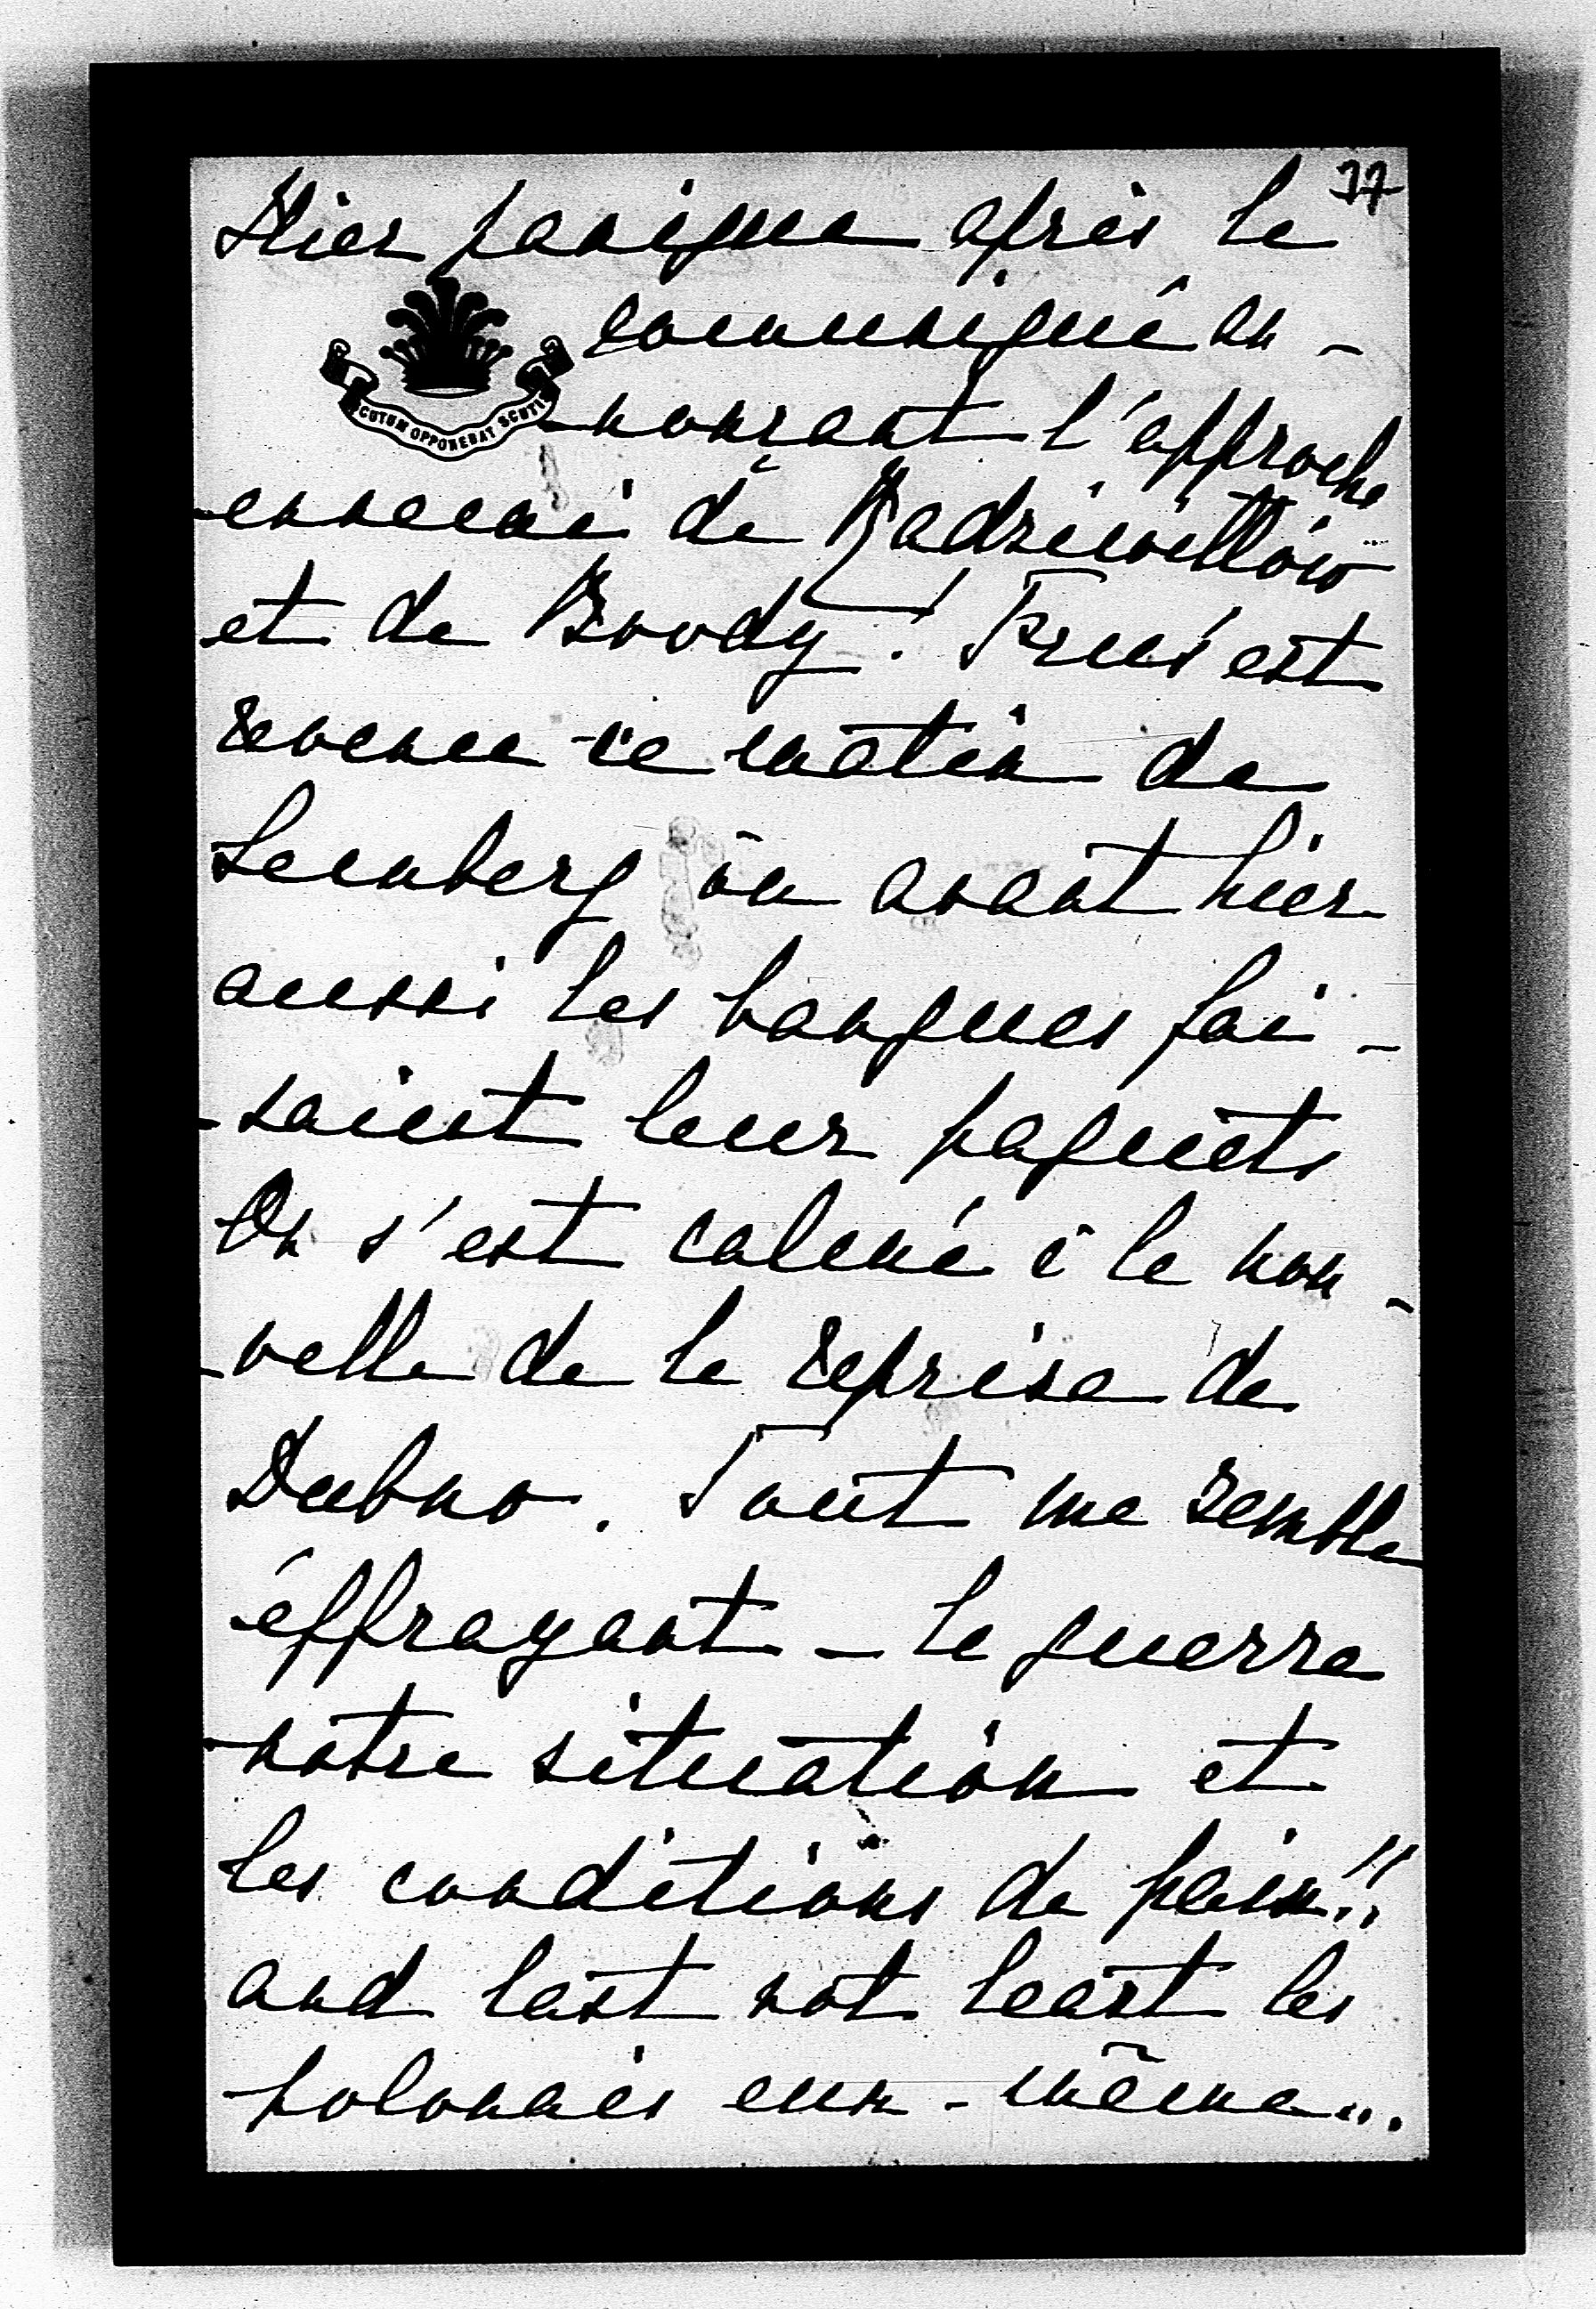 77
Hier panique après le
communiqué an-
SCUTUM OPPONEBAT SCUTIS
nonçant l'approche
ennemi de Radziwillów
et de Brody! est
revenu ce matin de
Lemberg où avant hier
aussi les banques fai-
-saient leur paquets
On s'est calmé à la nou-
-velle de la reprise de
Dubno. Tout me semble
éffrayant - la guerre
notre situation et
les conditions de paix!!
and last not least les
polonais eux-même...